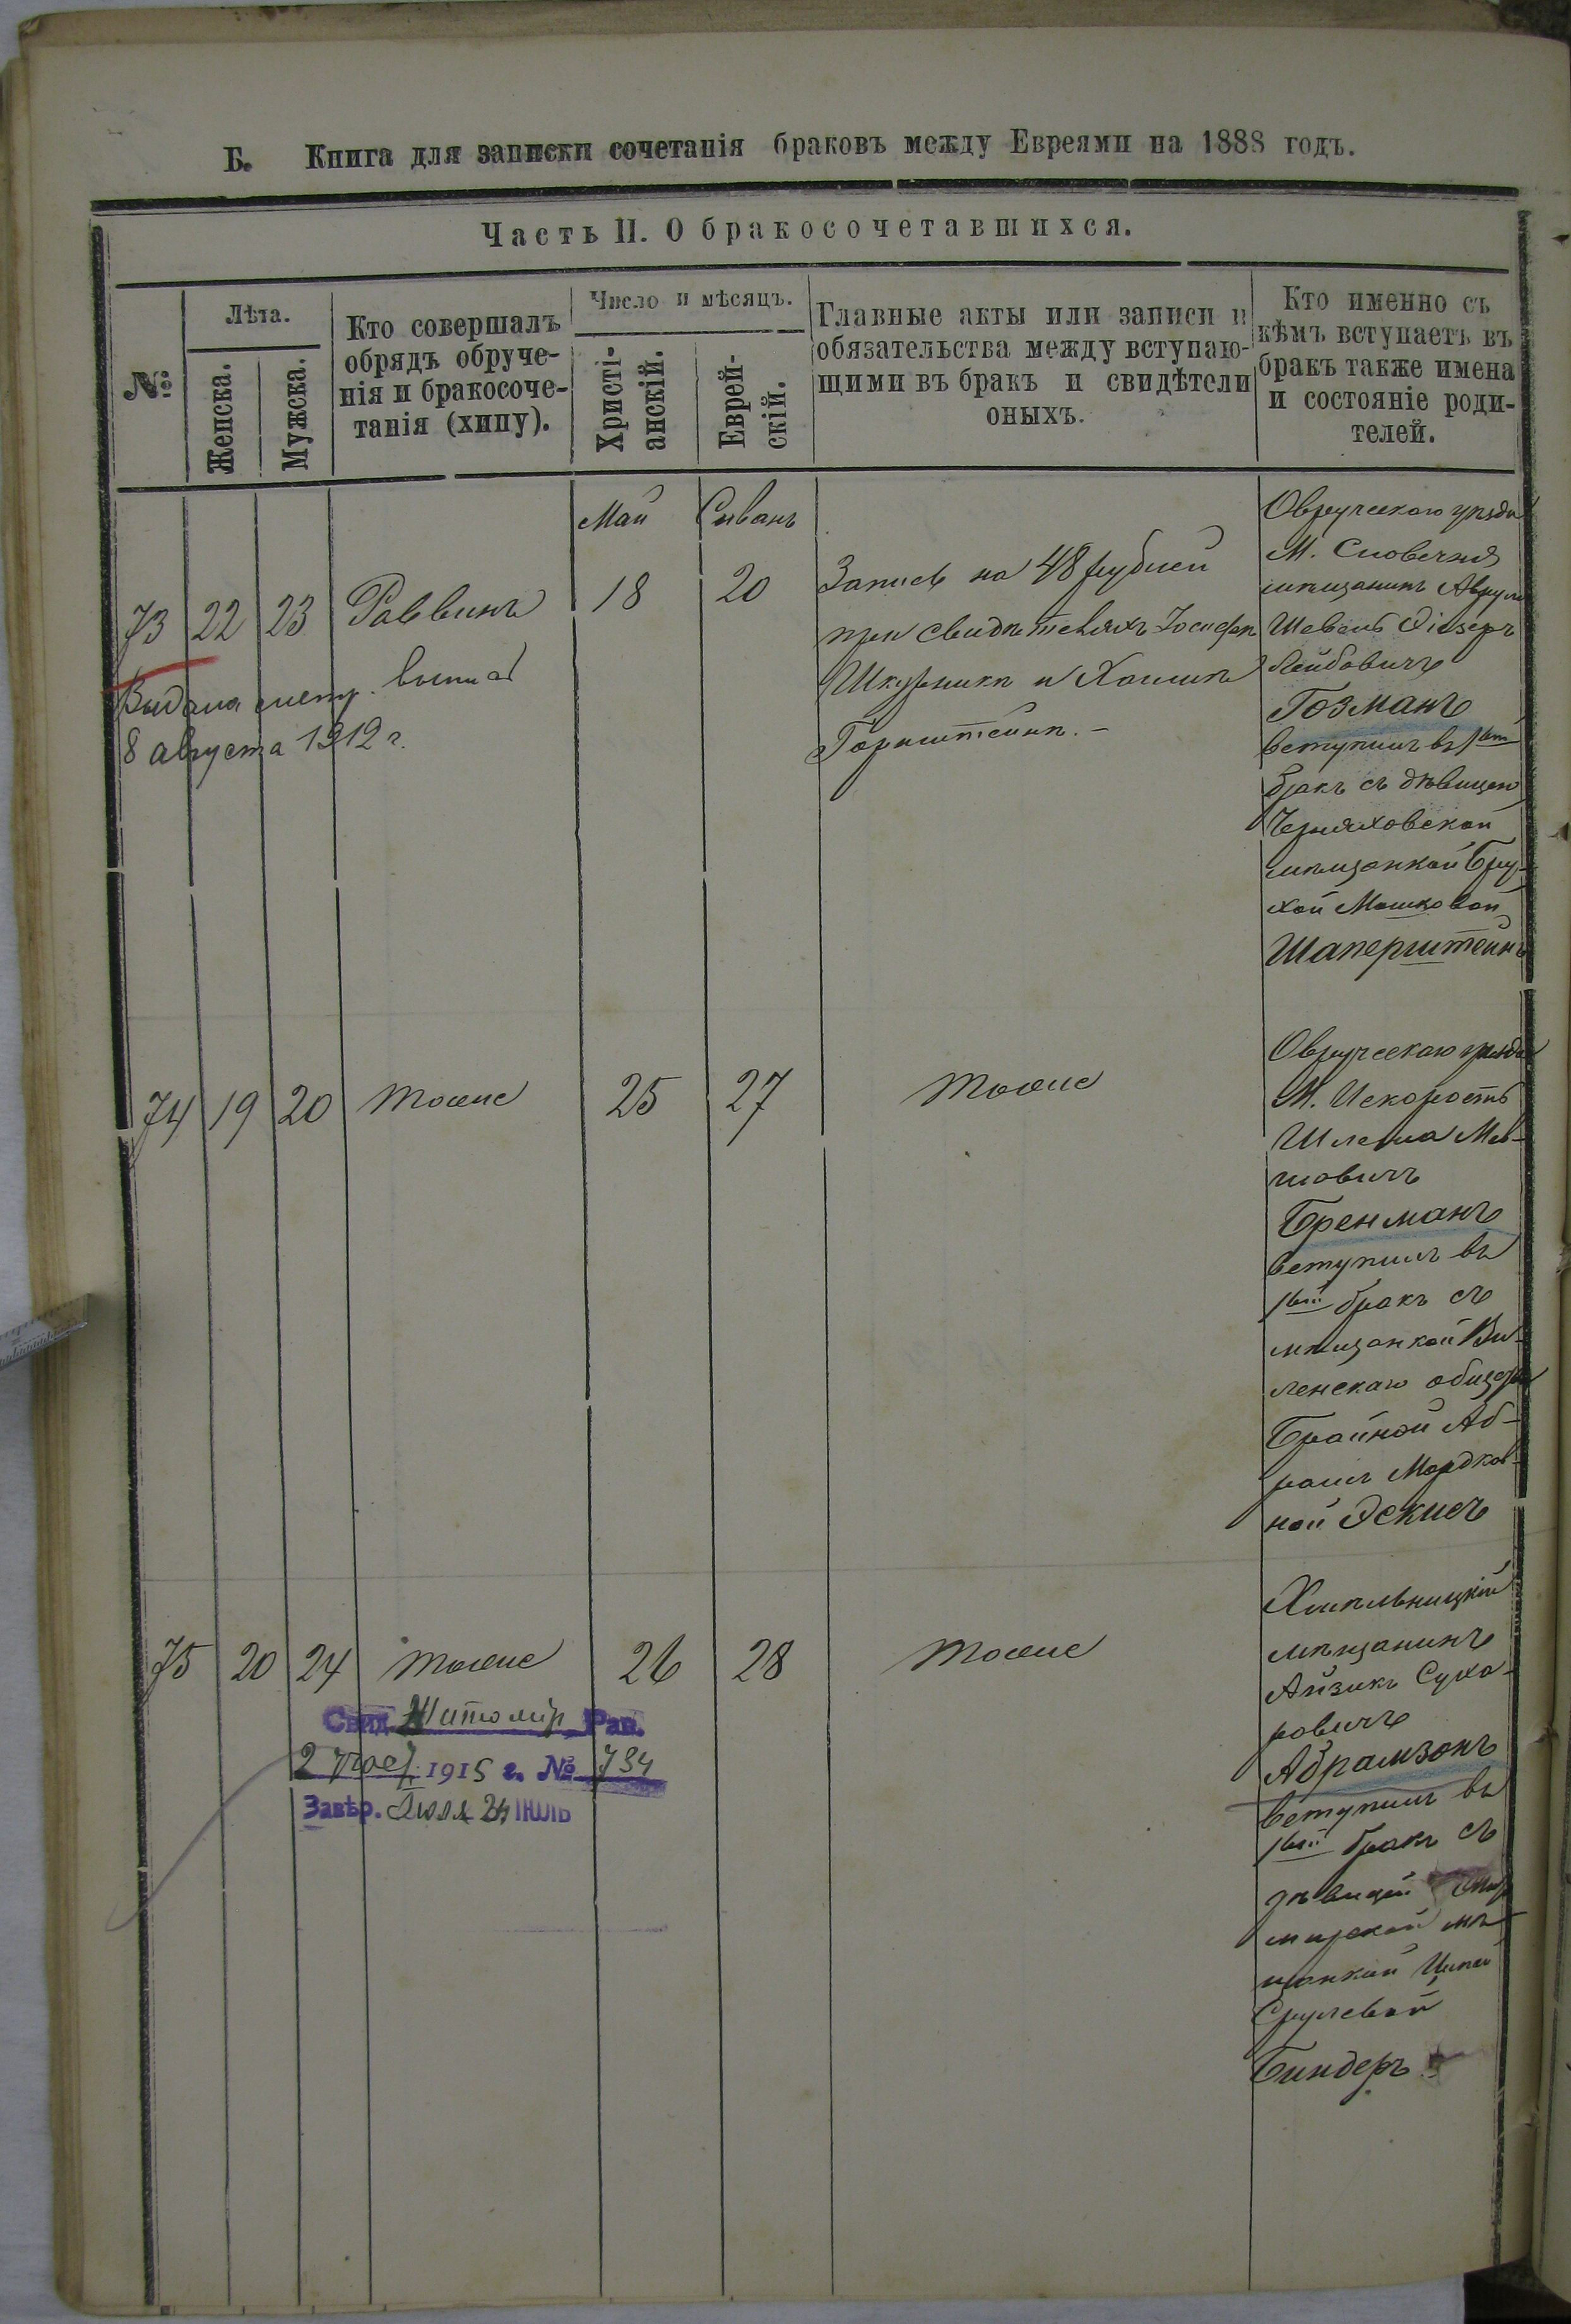 Б. Книга для записки сочетанія браковъ между Евреями на 1888 годъ.
Часть II. О бракосочетавшихся.
№
Лѣта.
Женска.
Мужска.
Кто совершалъ
обрядъ обруче-
нія и бракосоче-
танія (хипу).
Число и мѣсяцъ.
Христі-
анскій.
Еврей-
скій.
Главные акты или записи и
обязательства между вступаю-
щими въ бракъ и свидѣтели
оныхъ.
Кто именно съ
кѣмъ вступаетъ въ
бракъ также имена
и состояніе роди-
телей.
73 22 23 Раввинъ
Май Сиванъ
18 20
Запись на 48 рублей
при свидѣтеляхъ Іосифѣ
Шкурникѣ и Хаимѣ
Горнштейнѣ. –
Овручскаго уѣзда
М. Словечня
мѣщанинъ
Шевель
Лейбовичъ
Гозманъ
вступилъ въ 1вый
бракъ съ дѣвицею
Черняховской
мѣщанкой Бру-
хой Мошковой
Шаперштейнъ
Выдана метр. выпись
8 августа 1912 г.
74 19 20 тоже 25 27 тоже
Овручскаго уѣзда
М. Искорость
Шлема
Бренманъ
вступилъ въ
1вый бракъ съ
мѣщанкой Ви-
ленскаго общества
Брайной Аб-
рамъ Мордков-
ной Эскисъ
75 20 24 тоже 26 28 тоже
Хмѣльницкій
мѣщанинъ
Айзикъ Суха-
ровичъ
Абрамзонъ
вступилъ въ
1вый бракъ съ
дѣвицей
мирской мѣ-
щанкой
Срулевой
Биндеръ
Свид. Житомір. Рав.
2 1915 г. № 734
Завѣр. Іюля 24 ІЮЛЬ